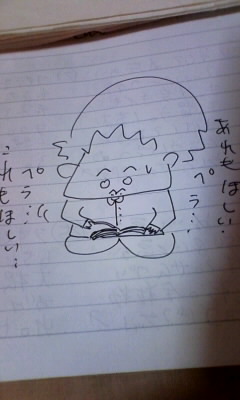 あれもほしい…
ペラ…
ペラ…
これもほしい…